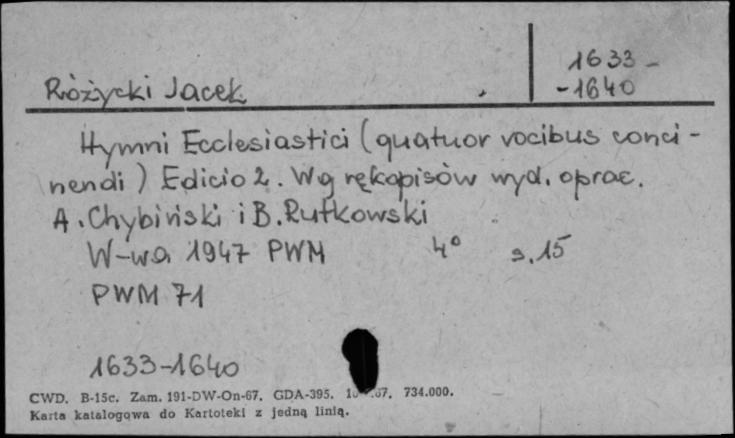 1633-
Różycki Jacek
-1640
Hymni Ecclesiastici (quatuor vocibus conci-
nendi) Edicio 2. Wg rękopisów wyd. oprac.
A. Chybiński i B. Rutkowski
W-wa 1947 PWM 4° s. 15
PWM 71
1633-1640
CWD. B-15c. Zam. 191-DW-On-67. GDA-395. 734.000.
Karta katalogowa do Kartoteki z jedną linią.